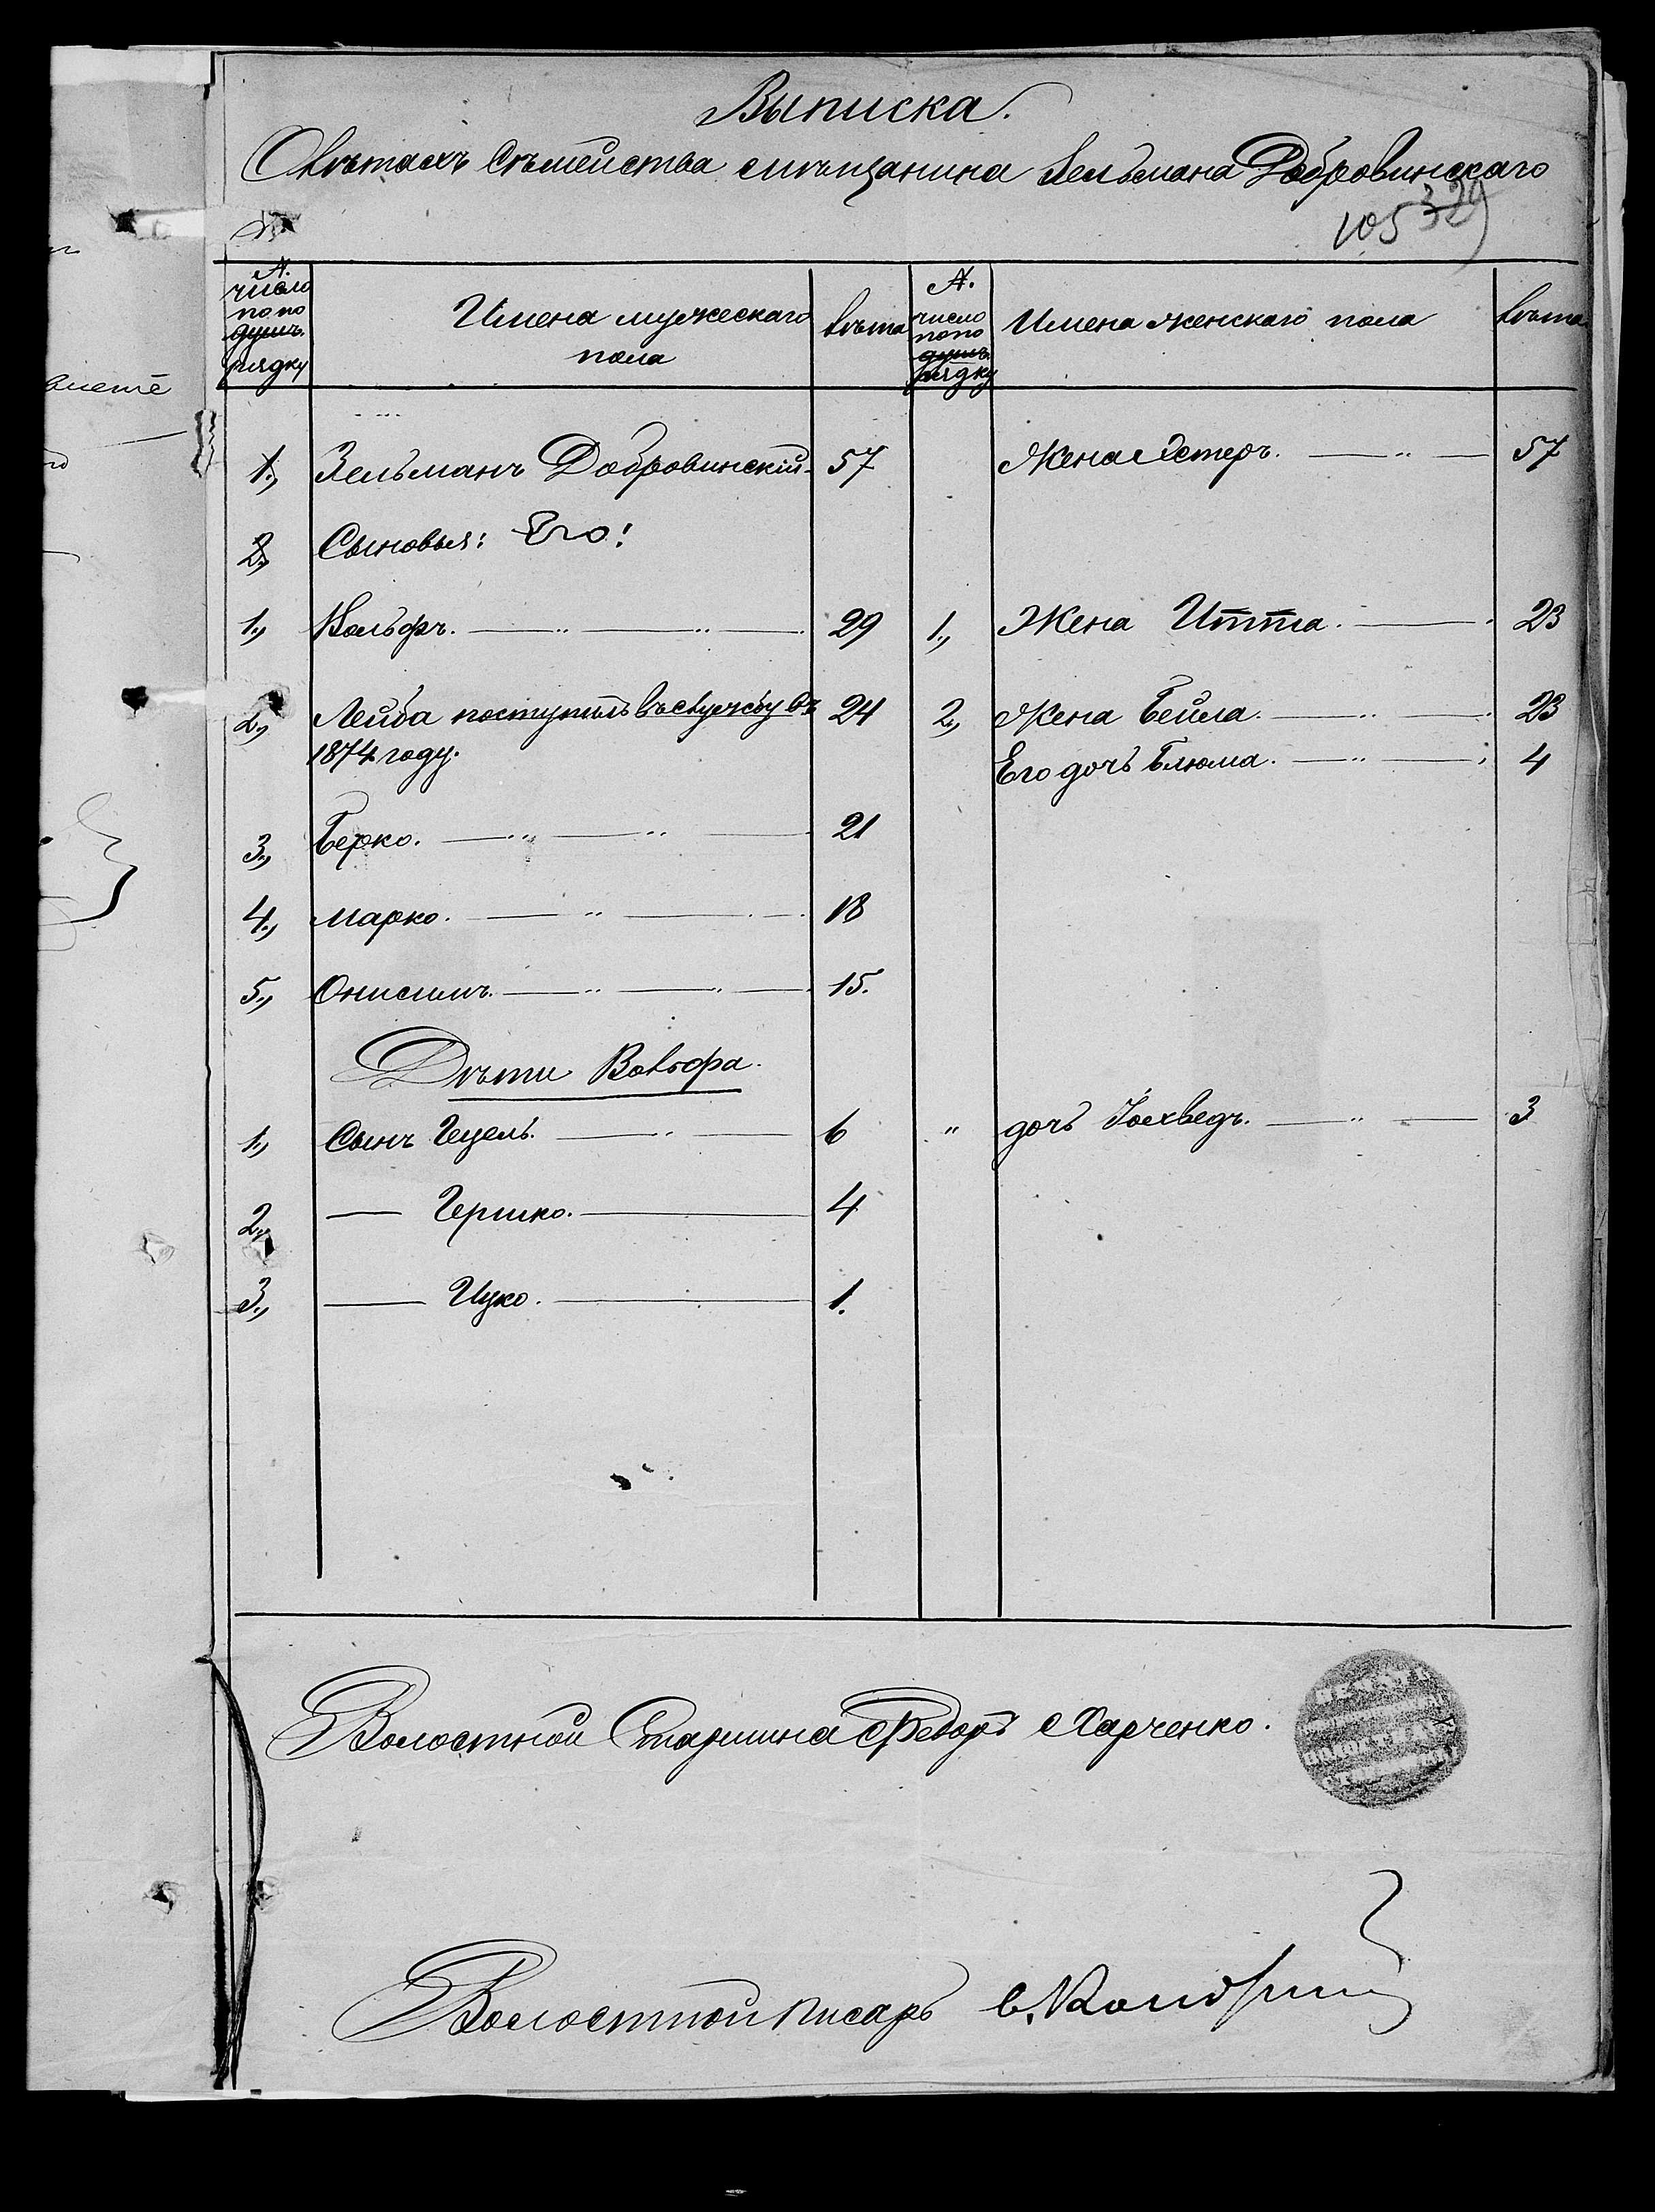 Выписка.
О лѣтахъ Сѣмейства мѣщанина Зельмана Добровинскаго
105 329
№.
число
по по
душ.
рядку
Имена мужескаго
пола
лѣта
№.
число
по по
душ.
рядку
Имена женскаго пола
лѣта
1., Зельманъ Добровинскій 57 Жена Эстеръ. 57
2., Сыновья: Его!
1., Вольфъ. 29 1., Жена Итта. 23
2., Лейба поступилъ въ службу въ 24 2., Жена Бейла. 23
1874 году. Его дочь Блюма. 4
3., Берко. 21
4., Марко. 18
5., Онисимъ. 15.
Дѣти Вольфа.
1., Сынъ Гецель. 6 " дочь Іохведъ. 3
2., — Гершко. 4
3., — Ицко. 1.
Волостной Старшина Федоръ Харченко.
Волостной писарь